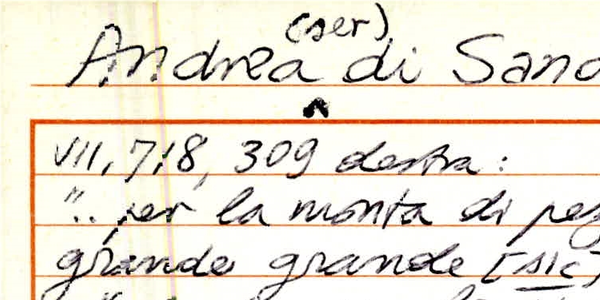 (ser)
Andrea di San
VII, 718, 309 destra:
".. per la monta di pez
grande grande [sic]